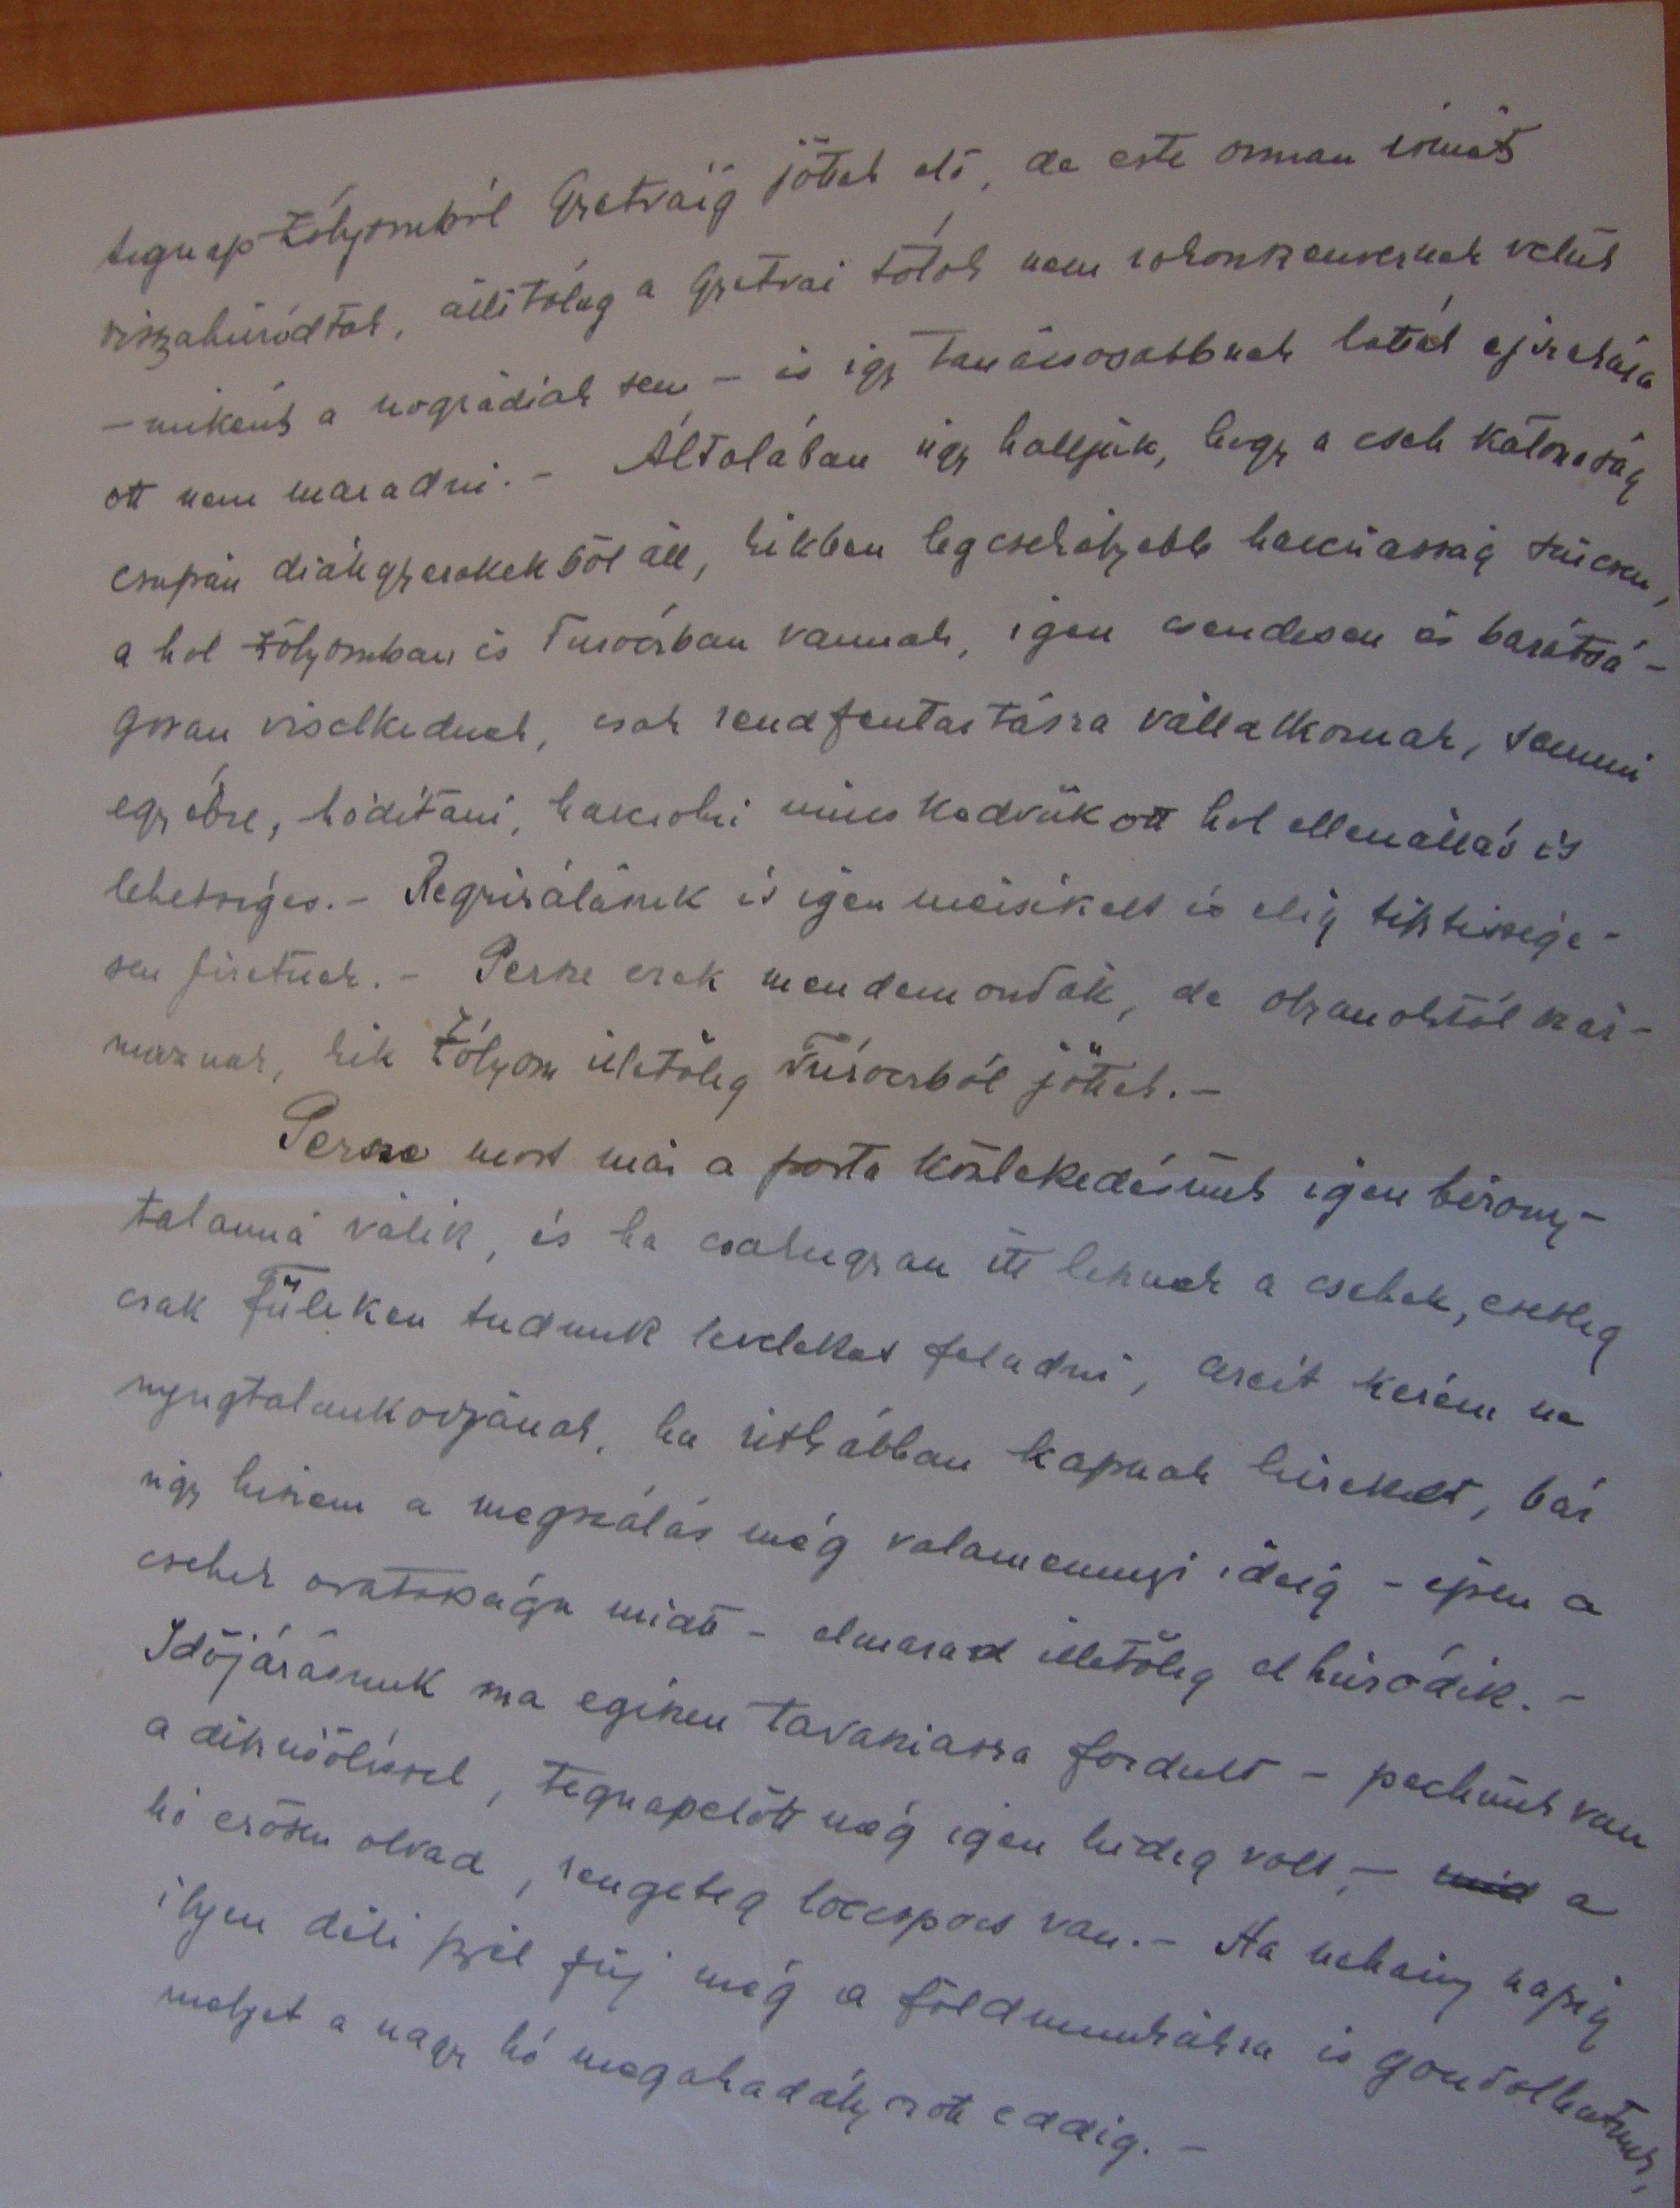 tegnap Zólyomból Gretváig jöttek elő, de este onnan ismét
visszahúzódtak, állitólag a Gretvai tótok nem rokonszenveznek velük
— miként a nográdiak sem — és igy tanácsosabbnak látták éjszakára
ott nem maradni. — Általában úgy halljuk, hogy a cseh katonaság
csupán diákgyerekekből áll, kikben legcsekélyebb harciasság sincsen,
a hol Zólyomban és Turócban vannak, igen csendesen és barátsá-
gosan viselkednek, csak rendfentartásra vállalkoznak, semmi
egyébre, hóditani, harcolni nincs kedvük ott hol ellenállás is
lehetséges. — Requirálásuk is igen mérsékelt és elég tisztessége-
sen fizetnek. — Persze ezek mendemondák, de olyanoktól szár-
maznak, kik Zólyom illetőleg Túrócból jöttek. —
Persze most már a posta közlekedésünk igen bizony-
talanná válik, és ha csakugyan itt lesznek a csehek, esetleg
csak Füleken tudunk leveleket feladni, azért kérem ne
nyugtalankodjanak, ha ritkábban kapnak hireket, bár
úgy hiszem a megszálás még valamennyi ideig — épen a
csehek óvatossága miatt — elmarad illetőleg elhúzódik. —
Időjárásunk ma egészen tavasziasra fordult — pechünk van
a disznóöléssel, tegnapelőtt még igen hideg volt, — a
hó erősen olvad, rengeteg locspocs van. — Ha nehány napig
ilyen déli szél fúj még a földmunkákra is gondolhatunk,
melyet a nagy hó megakadályozott eddig. —